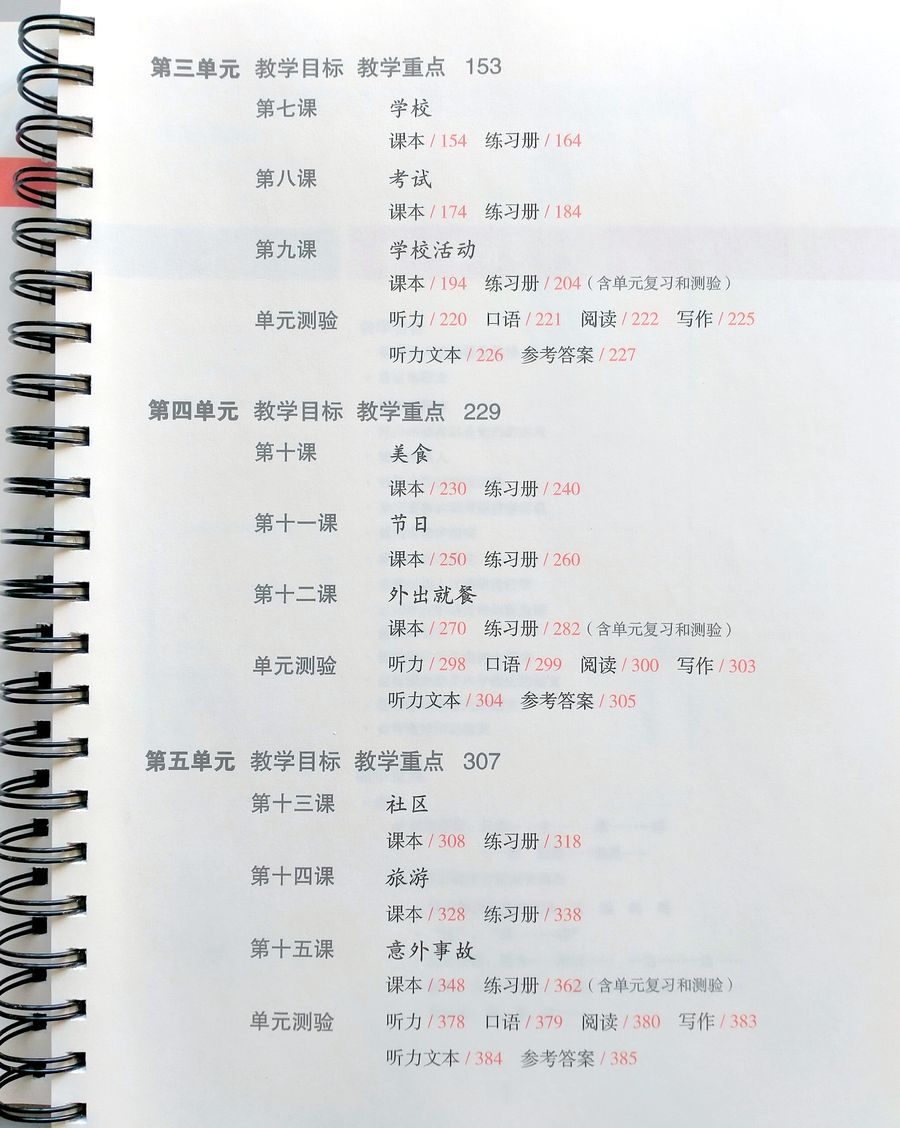 第三单元 教学目标 教学重点 153
第七课 学校
课本 / 154 练习册 / 164
第八课 考试
课本 / 174 练习册 / 184
第九课 学校活动
课本 / 194 练习册 / 204（含单元复习和测验）
单元测验 听力 / 220 口语 / 221 阅读 / 222 写作 / 225
听力文本 / 226 参考答案 / 227
第四单元 教学目标 教学重点 229
第十课 美食
课本 / 230 练习册 / 240
第十一课 节日
课本 / 250 练习册 / 260
第十二课 外出就餐
课本 / 270 练习册 / 282（含单元复习和测验）
单元测验 听力 / 298 口语 / 299 阅读 / 300 写作 / 303
听力文本 / 304 参考答案 / 305
第五单元 教学目标 教学重点 307
第十三课 社区
课本 / 308 练习册 / 318
第十四课 旅游
课本 / 328 练习册 / 338
第十五课 意外事故
课本 / 348 练习册 / 362（含单元复习和测验）
单元测验 听力 / 378 口语 / 379 阅读 / 380 写作 / 383
听力文本 / 384 参考答案 / 385